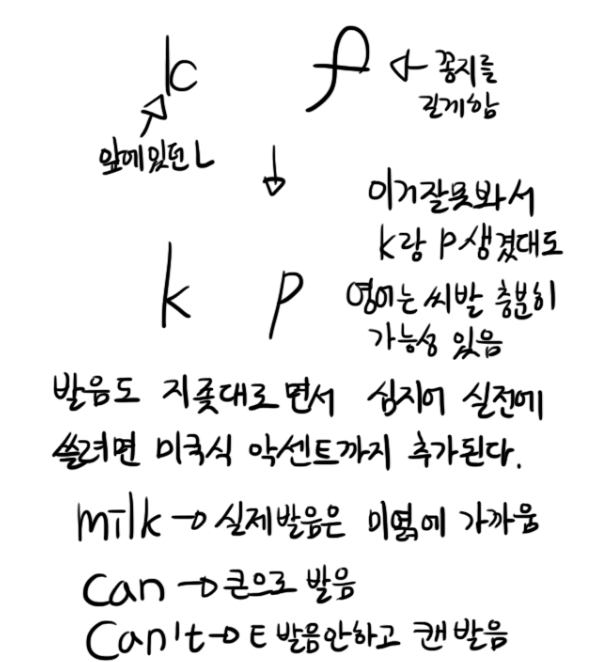 lc f ◁- 꽁지를
길게함
앞에있던 L
이거잘못봐서
k랑 P생겼대도
k p 영어는 씨발 충분히
가능성 있음
발음도 지좆대로면서 심지어 실전에
쓸려면 미국식 악센트까지 추가된다.
milk → 실제발음은 미열에 가까움
Can → 큰으로 발음
Can't → t 발음안하고 캔 발음